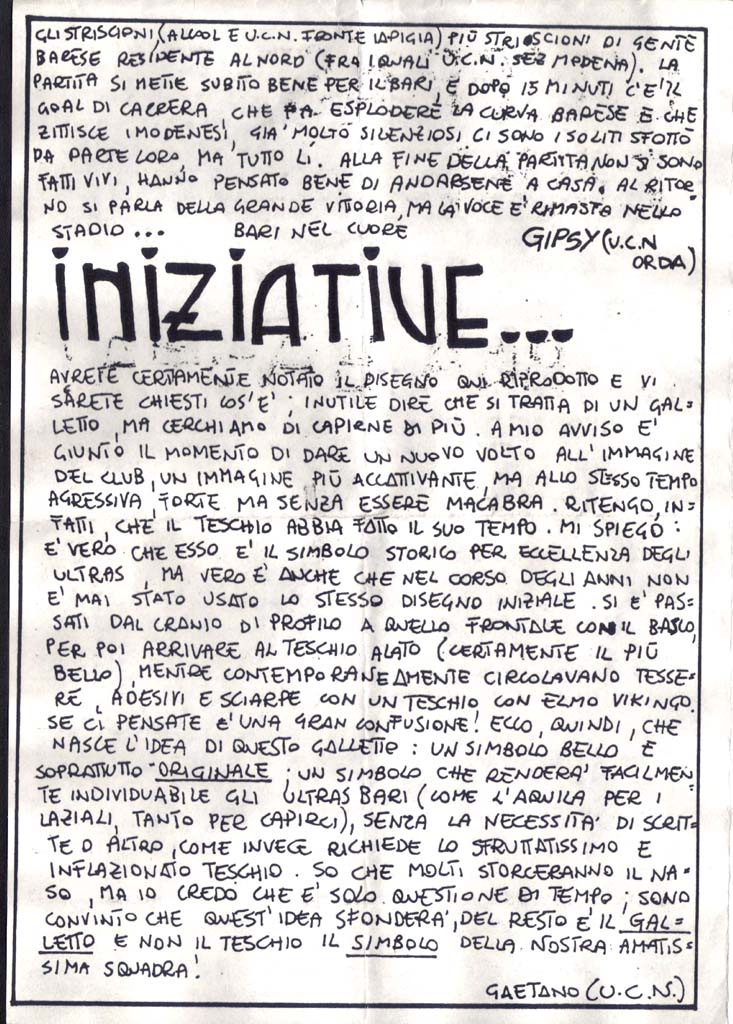 GLI STRISCIONI (ALCOOL E U.C.N. FRONTE IAPIGIA) PIÙ STRISCIONI DI GENTE
BARESE RESIDENTE AL NORD (FRA I QUALI U.C.N. SEZ MODENA). LA
PARTITA SI METTE SUBITO BENE PER IL BARI, E DOPO 13 MINUTI C'E' IL
GOAL DI CARRERA CHE FA ESPLODERE LA CURVA BARESE E CHE
ZITTISCE I MODENESI, GIA' MOLTO SILENZIOSI. CI SONO I SOLITI SFOTTÒ
DA PARTE LORO, MA TUTTO LÌ. ALLA FINE DELLA PARTITA NON SI SONO
FATTI VIVI, HANNO PENSATO BENE DI ANDARSENE A CASA. AL RITOR
NO SI PARLA DELLA GRANDE VITTORIA, MA LA VOCE E' RIMASTA NELLO
STADIO... BARI NEL CUORE
GIPSY (U.C.N
ORDA)
INIZIATIVE...
AVRETE CERTAMENTE NOTATO IL DISEGNO QUI RIPRODOTTO E VI
SARETE CHIESTI COS'E'; INUTILE DIRE CHE SI TRATTA DI UN GAL=
LETTO, MA CERCHIAMO DI CAPIRNE DI PIÙ. A MIO AVVISO E'
GIUNTO IL MOMENTO DI DARE UN NUOVO VOLTO ALL'IMMAGINE
DEL CLUB, UN IMMAGINE PIÙ ACCATTIVANTE, MA ALLO STESSO TEMPO
AGRESSIVA, FORTE MA SENZA ESSERE MACABRA. RITENGO, IN=
FATTI, CHE IL TESCHIO ABBIA FATTO IL SUO TEMPO. MI SPIEGO:
E' VERO CHE ESSO E' IL SIMBOLO STORICO PER ECCELLENZA DEGLI
ULTRAS, MA VERO E' ANCHE CHE NEL CORSO DEGLI ANNI NON
E' MAI STATO USATO LO STESSO DISEGNO INIZIALE. SI E' PAS=
SATI DAL CRANIO DI PROFILO A QUELLO FRONTALE CON IL BASCO,
PER POI ARRIVARE AL TESCHIO ALATO (CERTAMENTE IL PIÙ
BELLO), MENTRE CONTEMPORANEAMENTE CIRCOLAVANO TESSE=
RE, ADESIVI E SCIARPE CON UN TESCHIO CON ELMO VIKINGO.
SE CI PENSATE E' UNA GRAN CONFUSIONE! ECCO, QUINDI, CHE
NASCE L'IDEA DI QUESTO GALLETTO: UN SIMBOLO BELLO E
SOPRATTUTTO ORIGINALE; UN SIMBOLO CHE RENDERA' FACILMEN=
TE INDIVIDUABILE GLI ULTRAS BARI (COME L'AQUILA PER I
LAZIALI, TANTO PER CAPIRCI), SENZA LA NECESSITA' DI SCRIT=
TE O ALTRO, COME INVECE RICHIEDE LO SFRUTTATISSIMO E
INFLAZIONATO TESCHIO. SO CHE MOLTI STORCERANNO IL NA=
SO, MA IO CREDO CHE E' SOLO QUESTIONE DI TEMPO; SONO
CONVINTO CHE QUEST'IDEA SFONDERA', DEL RESTO E' IL GAL=
LETTO E NON IL TESCHIO IL SIMBOLO DELLA NOSTRA AMATIS=
SIMA SQUADRA!
GAETANO (U.C.N.)